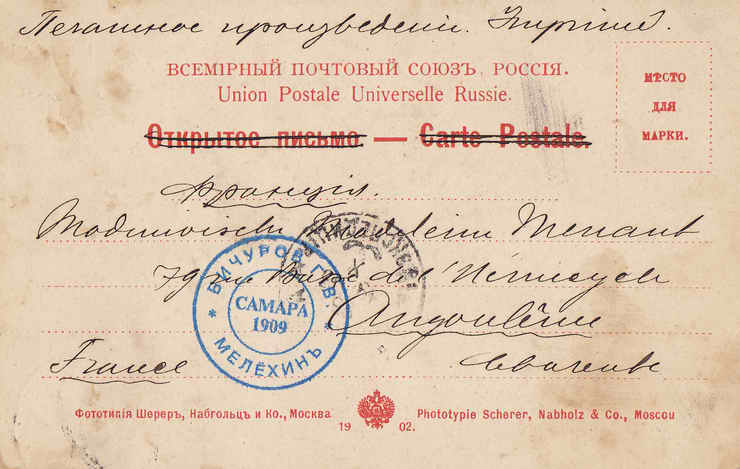 Печатное произведеніе. Imprimé.
ВСЕМІРНЫЙ ПОЧТОВЫЙ СОЮЗЪ, РОССІЯ.
Union Postale Universelle Russie.
МѢСТО
ДЛЯ
МАРКИ.
Открытое письмо. — Carte Postale.
Франція.
Madeleine Menant
79 de l'
Angoulême
France Charente
БИЧУРОВ
САМАРА
1909
* МЕЛЁХИНЪ *
Фототипія Шереръ, Набгольцъ и Ко., Москва Phototypie Scherer, Nabholz & Co., Moscou
19 02.